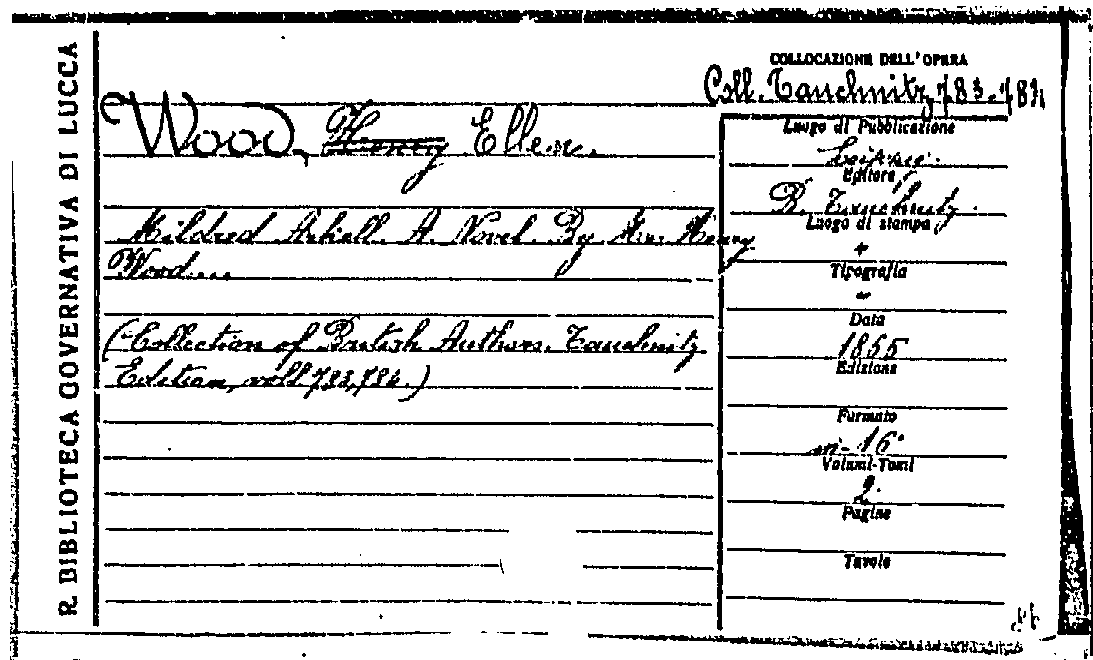 R. BIBLIOTECA GOVERNATIVA DI LUCCA
COLLOCAZIONE DELL'OPERA
Coll. Tauchnitz 783-784
Wood, Henry Ellen.
Mildred Arkell. A Novel. By Mrs. Henry
Wood...
(Collection of British Authors. Tauchnitz
Edition, voll 783, 784.)
Luogo di Pubblicazione
Editore
B. Tauchnitz.
Luogo di stampa
Tipografia
Data
1855
Edizione
Formato
in-16°
Volumi-Tomi
2.
Pagine
Tavole